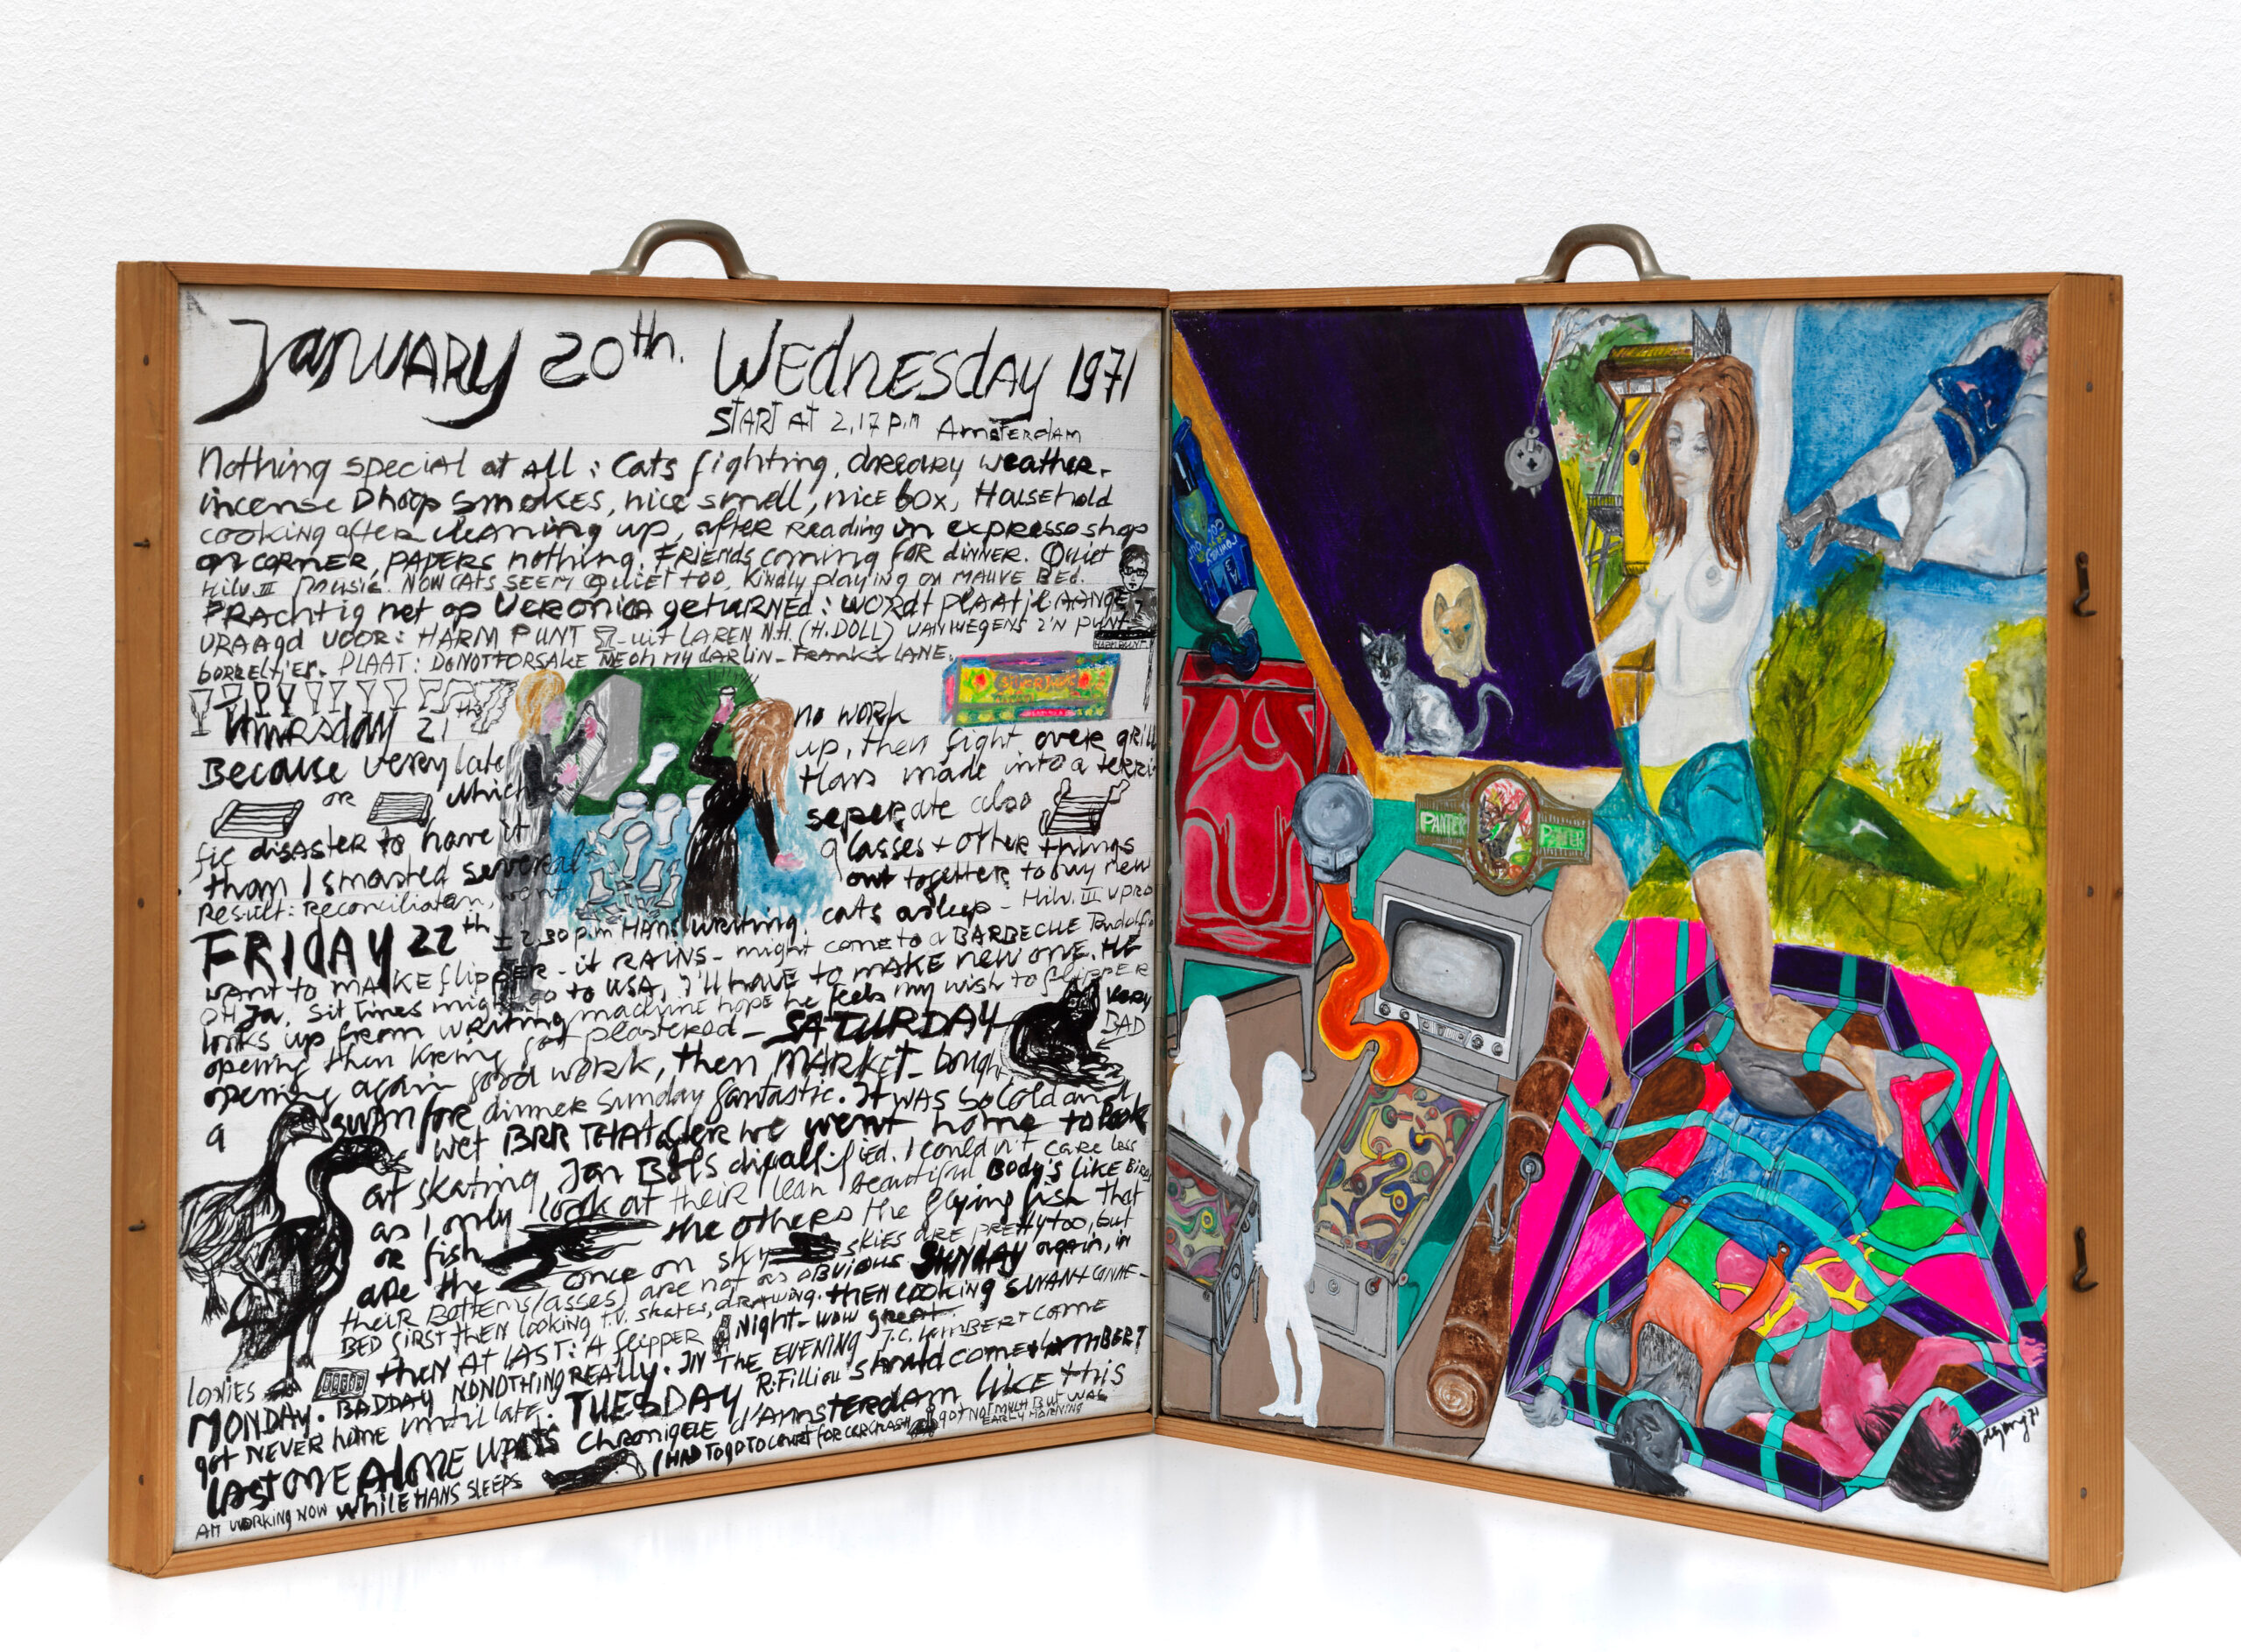 JANUARY 20th. WEDNESDAY 1971
START AT 2,17 P.M AMSTERDAM
Nothing special at all : Cats fighting, dreary weather.
incense Dhoop smokes, nice smell, nice box, Household
cooking after cleaning up, after reading in expresso shop
on corner, papers nothing. Friends coming for dinner. Quiet
Hilv. III music. NOW CATS SEEM QUIET TOO, Kindly playing on MAUVE BED.
PRACHTIG net op VERONICA geturned : WORDT PLAATJE AANGE
VRAAGD VOOR : HARM PUNT uit LAREN N.H. (H. DOLL) VANWEGENS Z'N PUNT
borreltjes. PLAAT : DO NOT FORSAKE ME OH MY DARLIN - FRANKIE LANE.
Thursday 21th no work
Because very late up, then fight over grill
OR which Hans made into a terri
fic disaster to have it seperate also
than I smashed several glasses + other things
Result: Reconciliation, went out together to buy new
FRIDAY 22th ± 2.30 p.m HANS writing. cats asleep - Hilv. III upro
want to MAKE flipper - it RAINS - might come to a BARBECUE
OH Ja, Sit Times might go to USA, I'll have to MAKE NEW ONE. HE
looks up from writing machine hope he feels my wish to flipper
opening then got plastered - SATURDAY VERY BAD
opening again good work, then MARKET - bought
a swan for dinner Sunday fantastic. It was so cold and
wet BRR THAT after we went home to look
at skating Jan Bols diqualified. I couldn't care less
as I only look at their lean beautiful Body's like Birds
or fish the others the flying fish that
are the once on sky skies are pretty too, but
their Bottems (asses) are not as obvious. SUNDAY again, in
BED first then looking T.V. skates, drawing. then cooking SWAN
then AT LAST : A flipper Night - wow great
lonies
MONDAY. BADDAY NONOTHING REALLY. IN THE EVENING J.C. LAMBERT COME
got NEVER home until late. TUESDAY R. Filliou should come + LAMBERT
LAST ONE ALONE WANTS CHRONIQUE d'AMSTERDAM like this
AM WORKING NOW while HANS SLEEPS I HAD TO GO TO COURT FOR CAR CRASH got NOT MUCH BUT WAS
EARLY MORNING
HARM PUNT
PANTER
PANTER
de jong 71